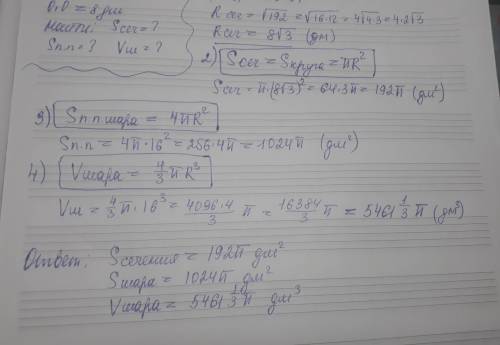 O₁O = 8 дм
Найти: Sсеч = ?
Sп.п = ? Vш = ?
Rсеч = √192 = √16·12 = 4√4·3 = 4·2√3
Rсеч = 8√3 (дм)
2) Sсеч = Sкруга = πR²
Sсеч = π·(8√3)² = 64·3π = 192π (дм²)
3) Sп.п шара = 4πR²
Sп.п = 4π·16² = 256·4π = 1024π (дм²)
4) Vшара = 4/3 πR³
Vш = 4/3 π·16³ = 4096·4/3 π = 16384/3 π = 5461 1/3 π (дм³)
Ответ: Sсечения = 192π дм²
Sшара = 1024π дм²
Vшара = 5461 1/3 π дм³